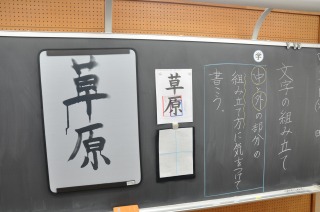 文字の組み立て
学
中と外の部分の
組み立て方に気をつけて
書こう。
草原
草原